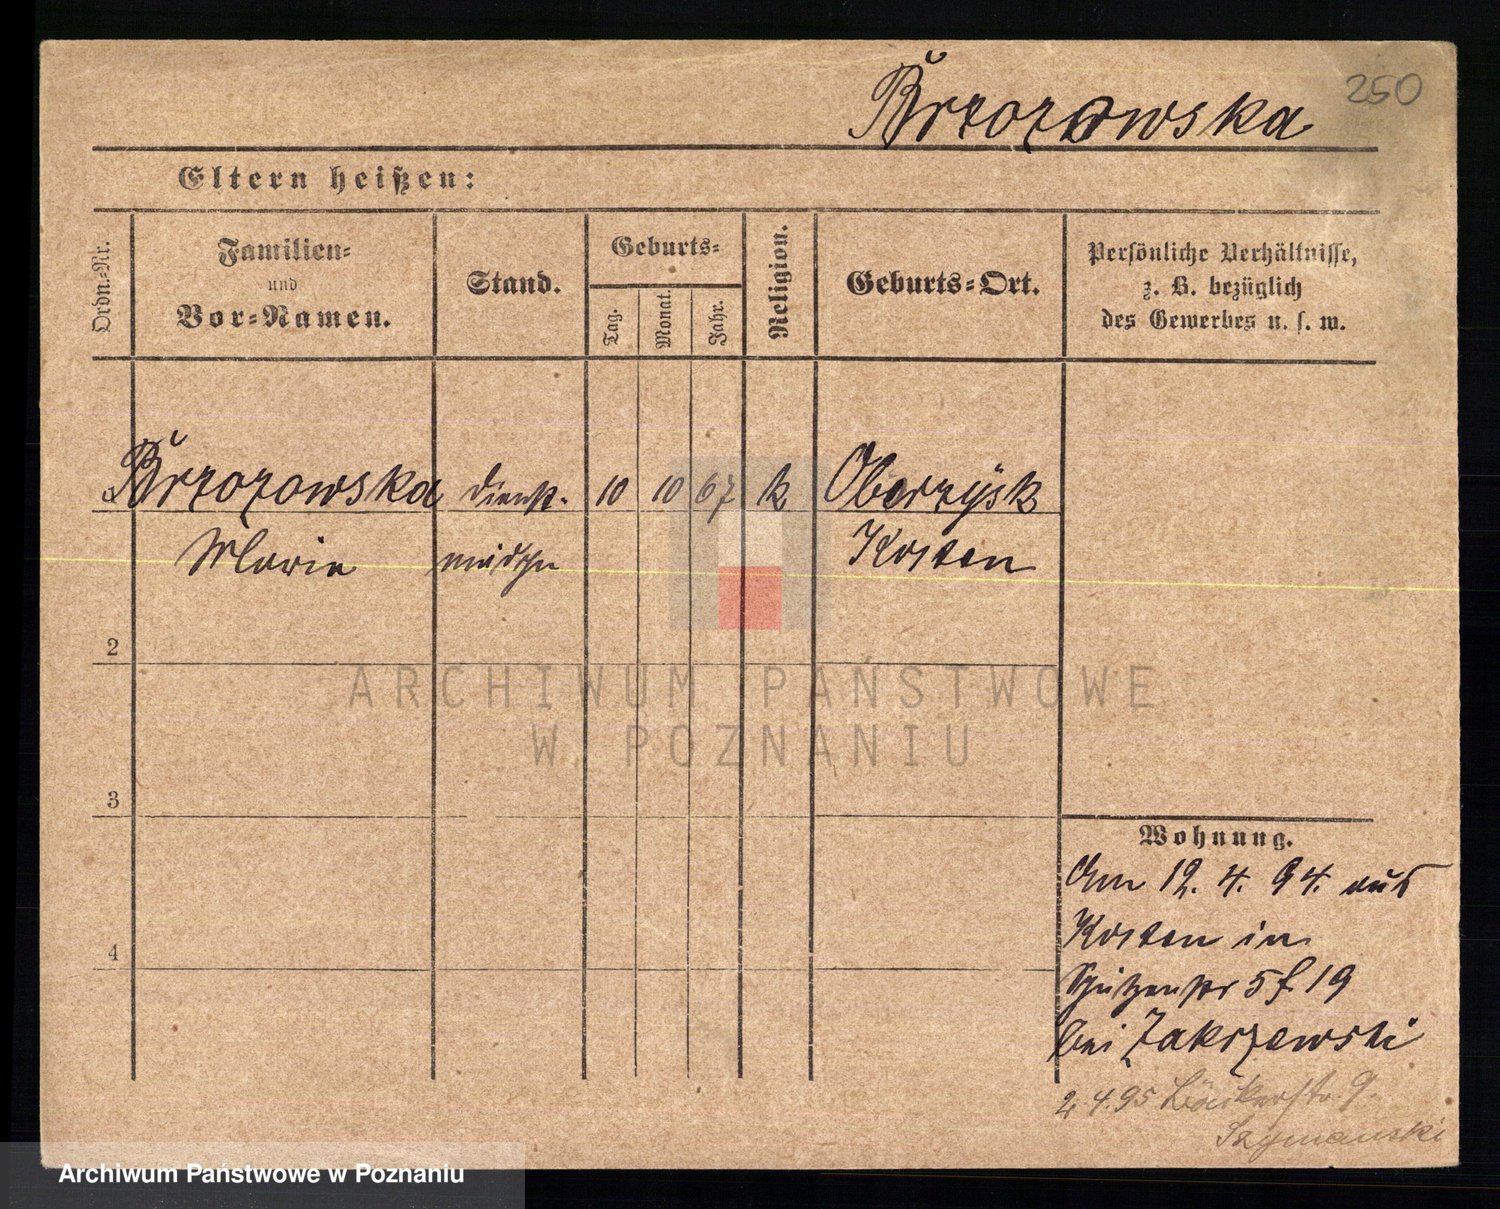 250
Brzozowska
Eltern heißen:
Ordn.-Nr.
Familien-
und
Vor-Namen.
Stand.
Geburts-
Tag.
Monat.
Jahr.
Religion.
Geburts-Ort.
Persönliche Verhältnisse,
z. B. bezüglich
des Gewerbes u. s. w.
Brzozowska Dienst- 10 10 67 k Oborzysk
Marie mädchen Kosten
2
3
4
Wohnung.
Am 12. 4. 94. aus
Kosten in
Schützenstr 5 f. 19
bei Zakrzewski
2. 4. 95 Bäckerstr. 9.
Szymanski
ARCHIWUM PAŃSTWOWE
W POZNANIU
Archiwum Państwowe w Poznaniu